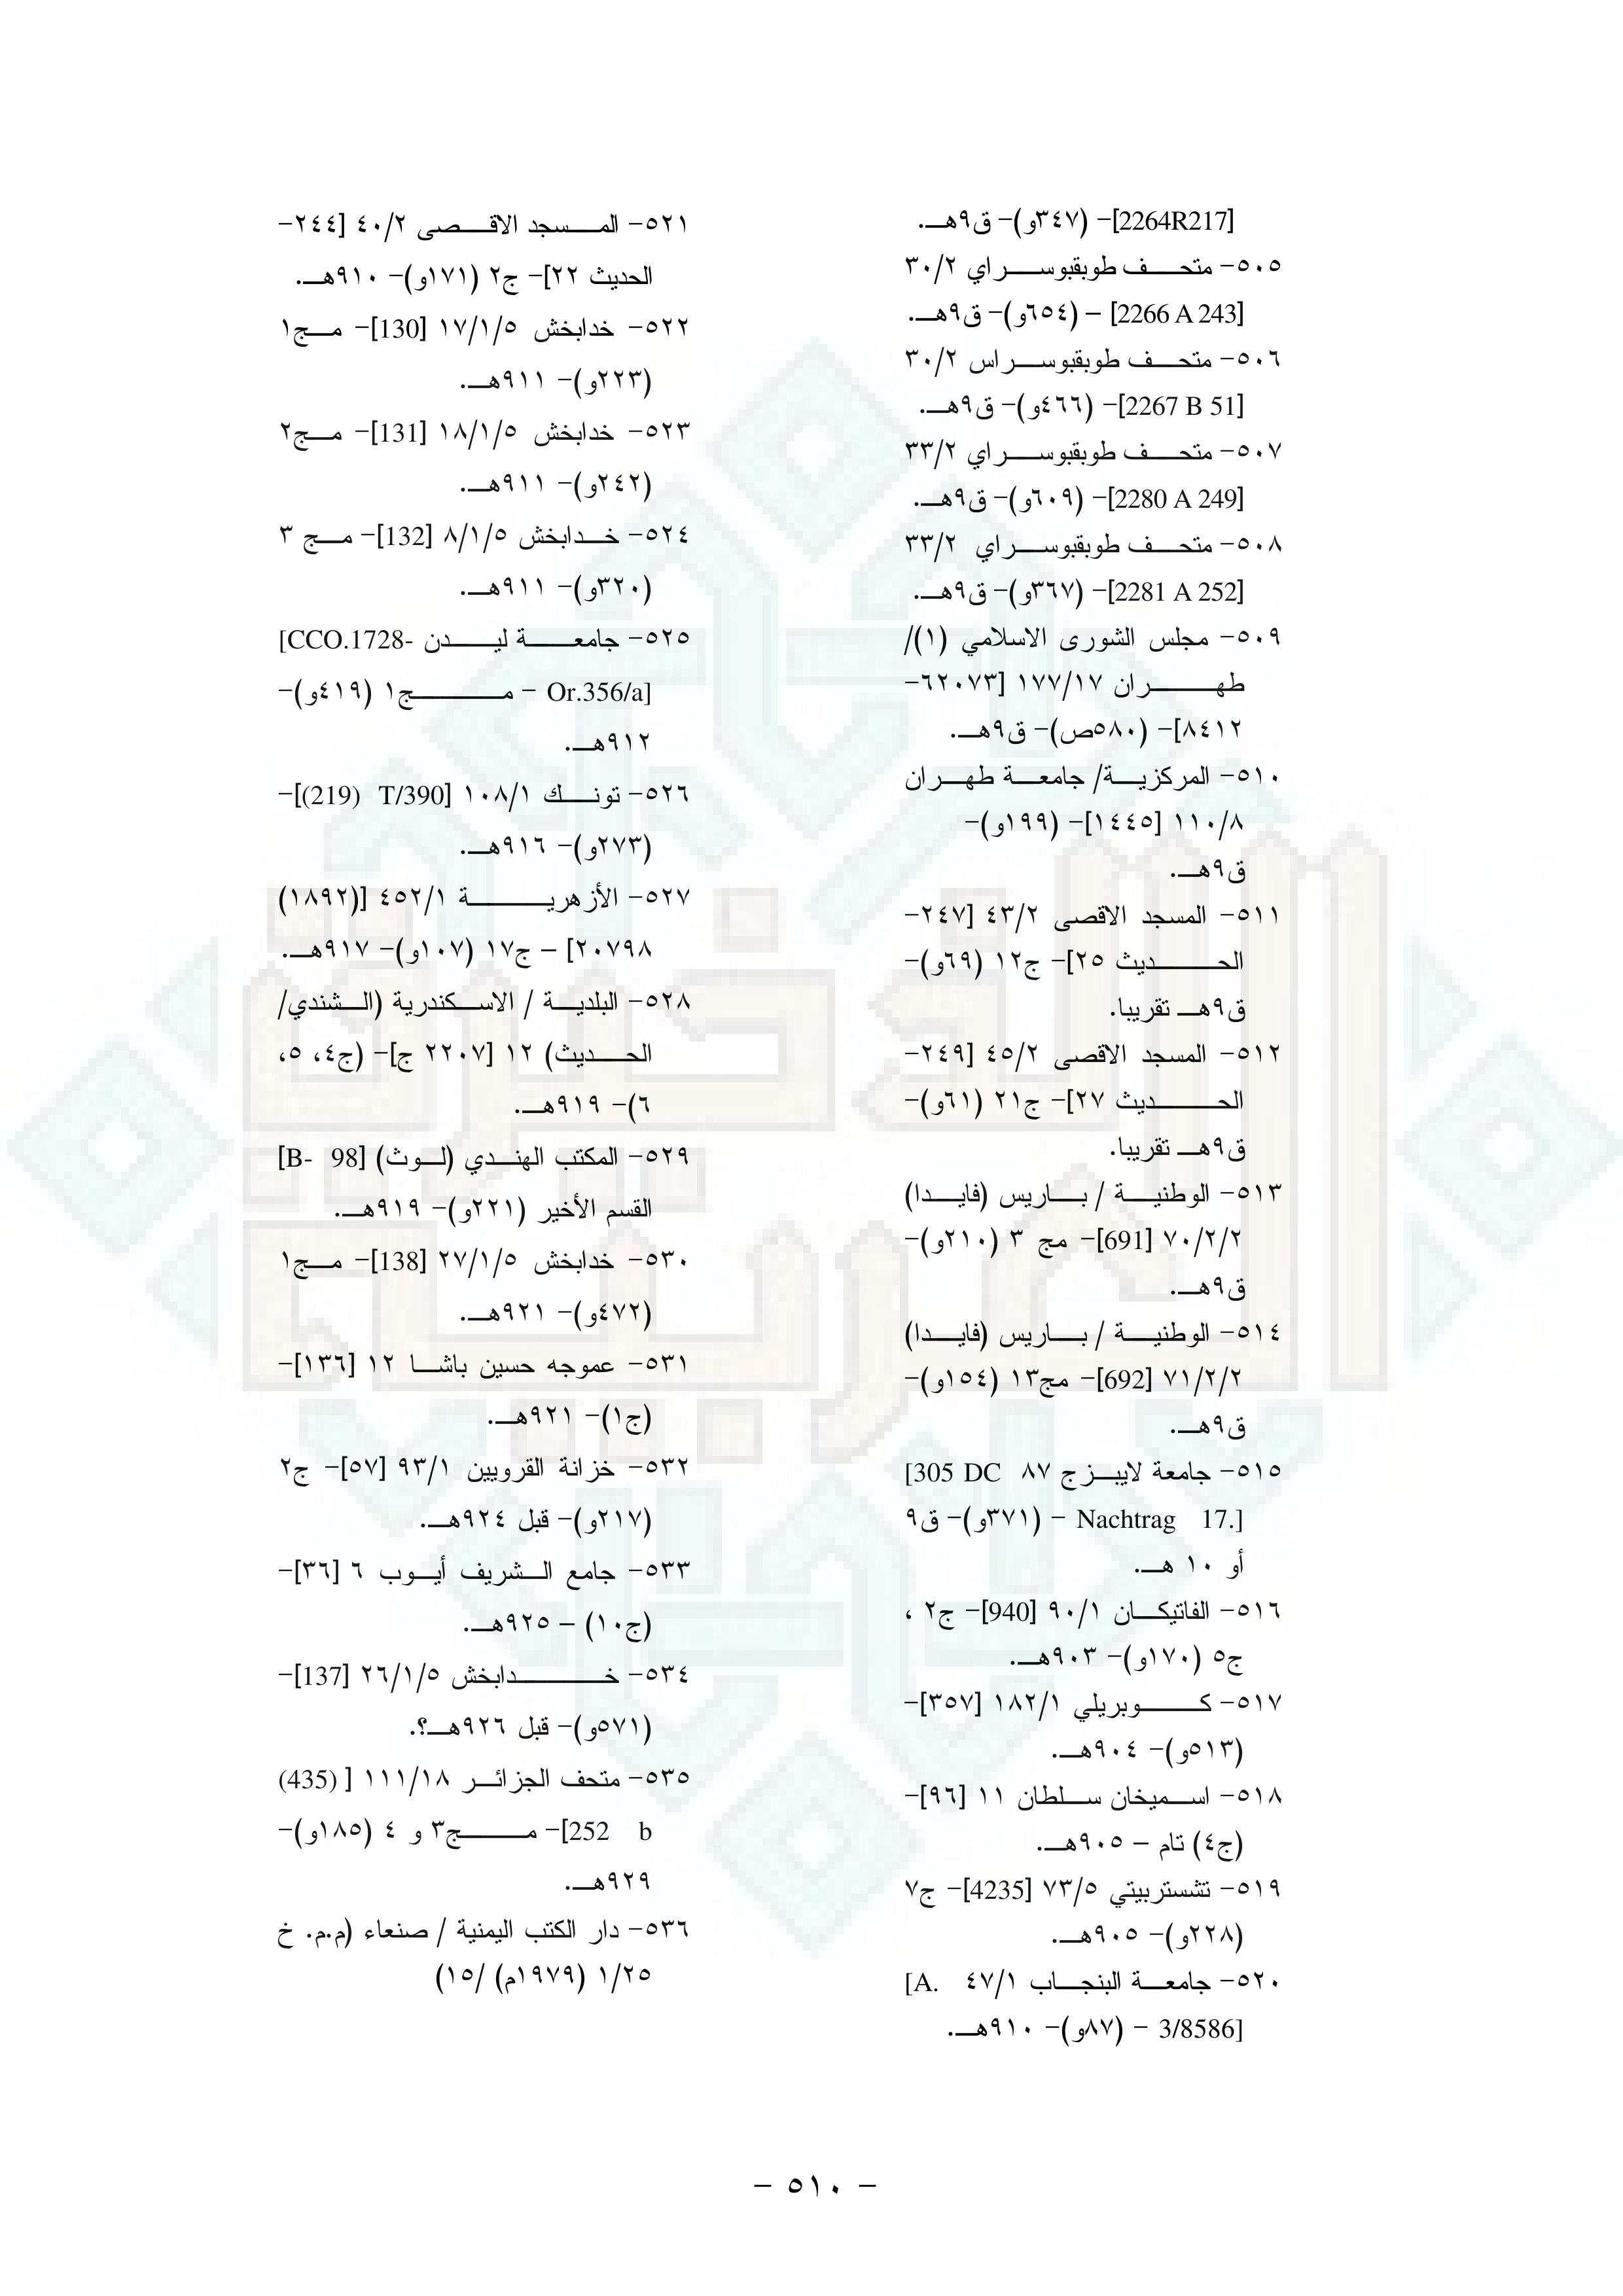 [2264R217]- (٣٤٧و)- ق٩هـ.
٥٠٥- متحف طوبقبوسراي ٣٠/٢
[2266 A 243] – (٦٥٤و)- ق٩هـ.
٥٠٦- متحف طوبقبوسراس ٣٠/٢
[2267 B 51]- (٤٦٦و)- ق٩هـ.
٥٠٧- متحف طوبقبوسراي ٣٣/٢
[2280 A 249]- (٦٠٩و)- ق٩هـ.
٥٠٨- متحف طوبقبوسراي ٣٣/٢
[2281 A 252]- (٣٦٧و)- ق٩هـ.
٥٠٩- مجلس الشورى الاسلامي (١)/
طهران ١٧٧/١٧ [٦٢٠٧٣-
٨٤١٢]- (٥٨٠ص)- ق٩هـ.
٥١٠- المركزية/ جامعة طهران
١١٠/٨ [١٤٤٥]- (١٩٩و)-
ق٩هـ.
٥١١- المسجد الاقصى ٤٣/٢ [٢٤٧-
الحديث ٢٥]- ج١٢ (٦٩و)-
ق٩هـ تقريبا.
٥١٢- المسجد الاقصى ٤٥/٢ [٢٤٩-
الحديث ٢٧]- ج٢١ (٦١و)-
ق٩هـ تقريبا.
٥١٣- الوطنية / باريس (فايدا)
٧٠/٢/٢ [691]- مج ٣ (٢١٠و)-
ق٩هـ.
٥١٤- الوطنية / باريس (فايدا)
٧١/٢/٢ [692]- مج١٣ (١٥٤و)-
ق٩هـ.
٥١٥- جامعة لايبزج ٨٧ [305 DC
Nachtrag 17.] – (٣٧١و)- ق٩
أو ١٠ هـ.
٥١٦- الفاتيكان ٩٠/١ [940]- ج٢ ،
ج٥ (١٧٠و)- ٩٠٣هـ.
٥١٧- كوبريلي ١٨٢/١ [٣٥٧]-
(٥١٣و)- ٩٠٤هـ.
٥١٨- اسميخان سلطان ١١ [٩٦]-
(ج٤) تام – ٩٠٥هـ.
٥١٩- تشستربيتي ٧٣/٥ [4235]- ج٧
(٢٢٨و)- ٩٠٥هـ.
٥٢٠- جامعة البنجاب ٤٧/١ [A.
3/8586] – (٨٧و)- ٩١٠هـ.
٥٢١- المسجد الاقصى ٤٠/٢ [٢٤٤-
الحديث ٢٢]- ج٢ (١٧١و)- ٩١٠هـ.
٥٢٢- خدابخش ١٧/١/٥ [130]- مج١
(٢٢٣و)- ٩١١هـ.
٥٢٣- خدابخش ١٨/١/٥ [131]- مج٢
(٢٤٢و)- ٩١١هـ.
٥٢٤- خدابخش ٨/١/٥ [132]- مج ٣
(٣٢٠و)- ٩١١هـ.
٥٢٥- جامعة ليدن [CCO.1728-
Or.356/a] – مج١ (٤١٩و)-
٩١٢هـ.
٥٢٦- تونك ١٠٨/١ [T/390 (219)]-
(٢٧٣و)- ٩١٦هـ.
٥٢٧- الأزهرية ٤٥٢/١ [(١٨٩٢)
٢٠٧٩٨] – ج١٧ (١٠٧و)- ٩١٧هـ.
٥٢٨- البلدية / الاسكندرية (الشندي/
الحديث) ١٢ [٢٢٠٧ ج]- (ج٤، ٥،
٦)- ٩١٩هـ.
٥٢٩- المكتب الهندي (لوث) [B- 98]
القسم الأخير (٢٢١و)- ٩١٩هـ.
٥٣٠- خدابخش ٢٧/١/٥ [138]- مج١
(٤٧٢و)- ٩٢١هـ.
٥٣١- عموجه حسين باشا ١٢ [١٣٦]-
(ج١)- ٩٢١هـ.
٥٣٢- خزانة القرويين ٩٣/١ [٥٧]- ج٢
(٢١٧و)- قبل ٩٢٤هـ.
٥٣٣- جامع الشريف أيوب ٦ [٣٦]-
(ج١٠) – ٩٢٥هـ.
٥٣٤- خدابخش ٢٦/١/٥ [137]-
(٥٧١و)- قبل ٩٢٦هـ؟.
٥٣٥- متحف الجزائر ١١١/١٨ [ (435)
252 b]- مج٣ و ٤ (١٨٥و)-
٩٢٩هـ.
٥٣٦- دار الكتب اليمنية / صنعاء (م.م. خ
١/٢٥ (١٩٧٩م) /١٥)
– ٥١٠ –